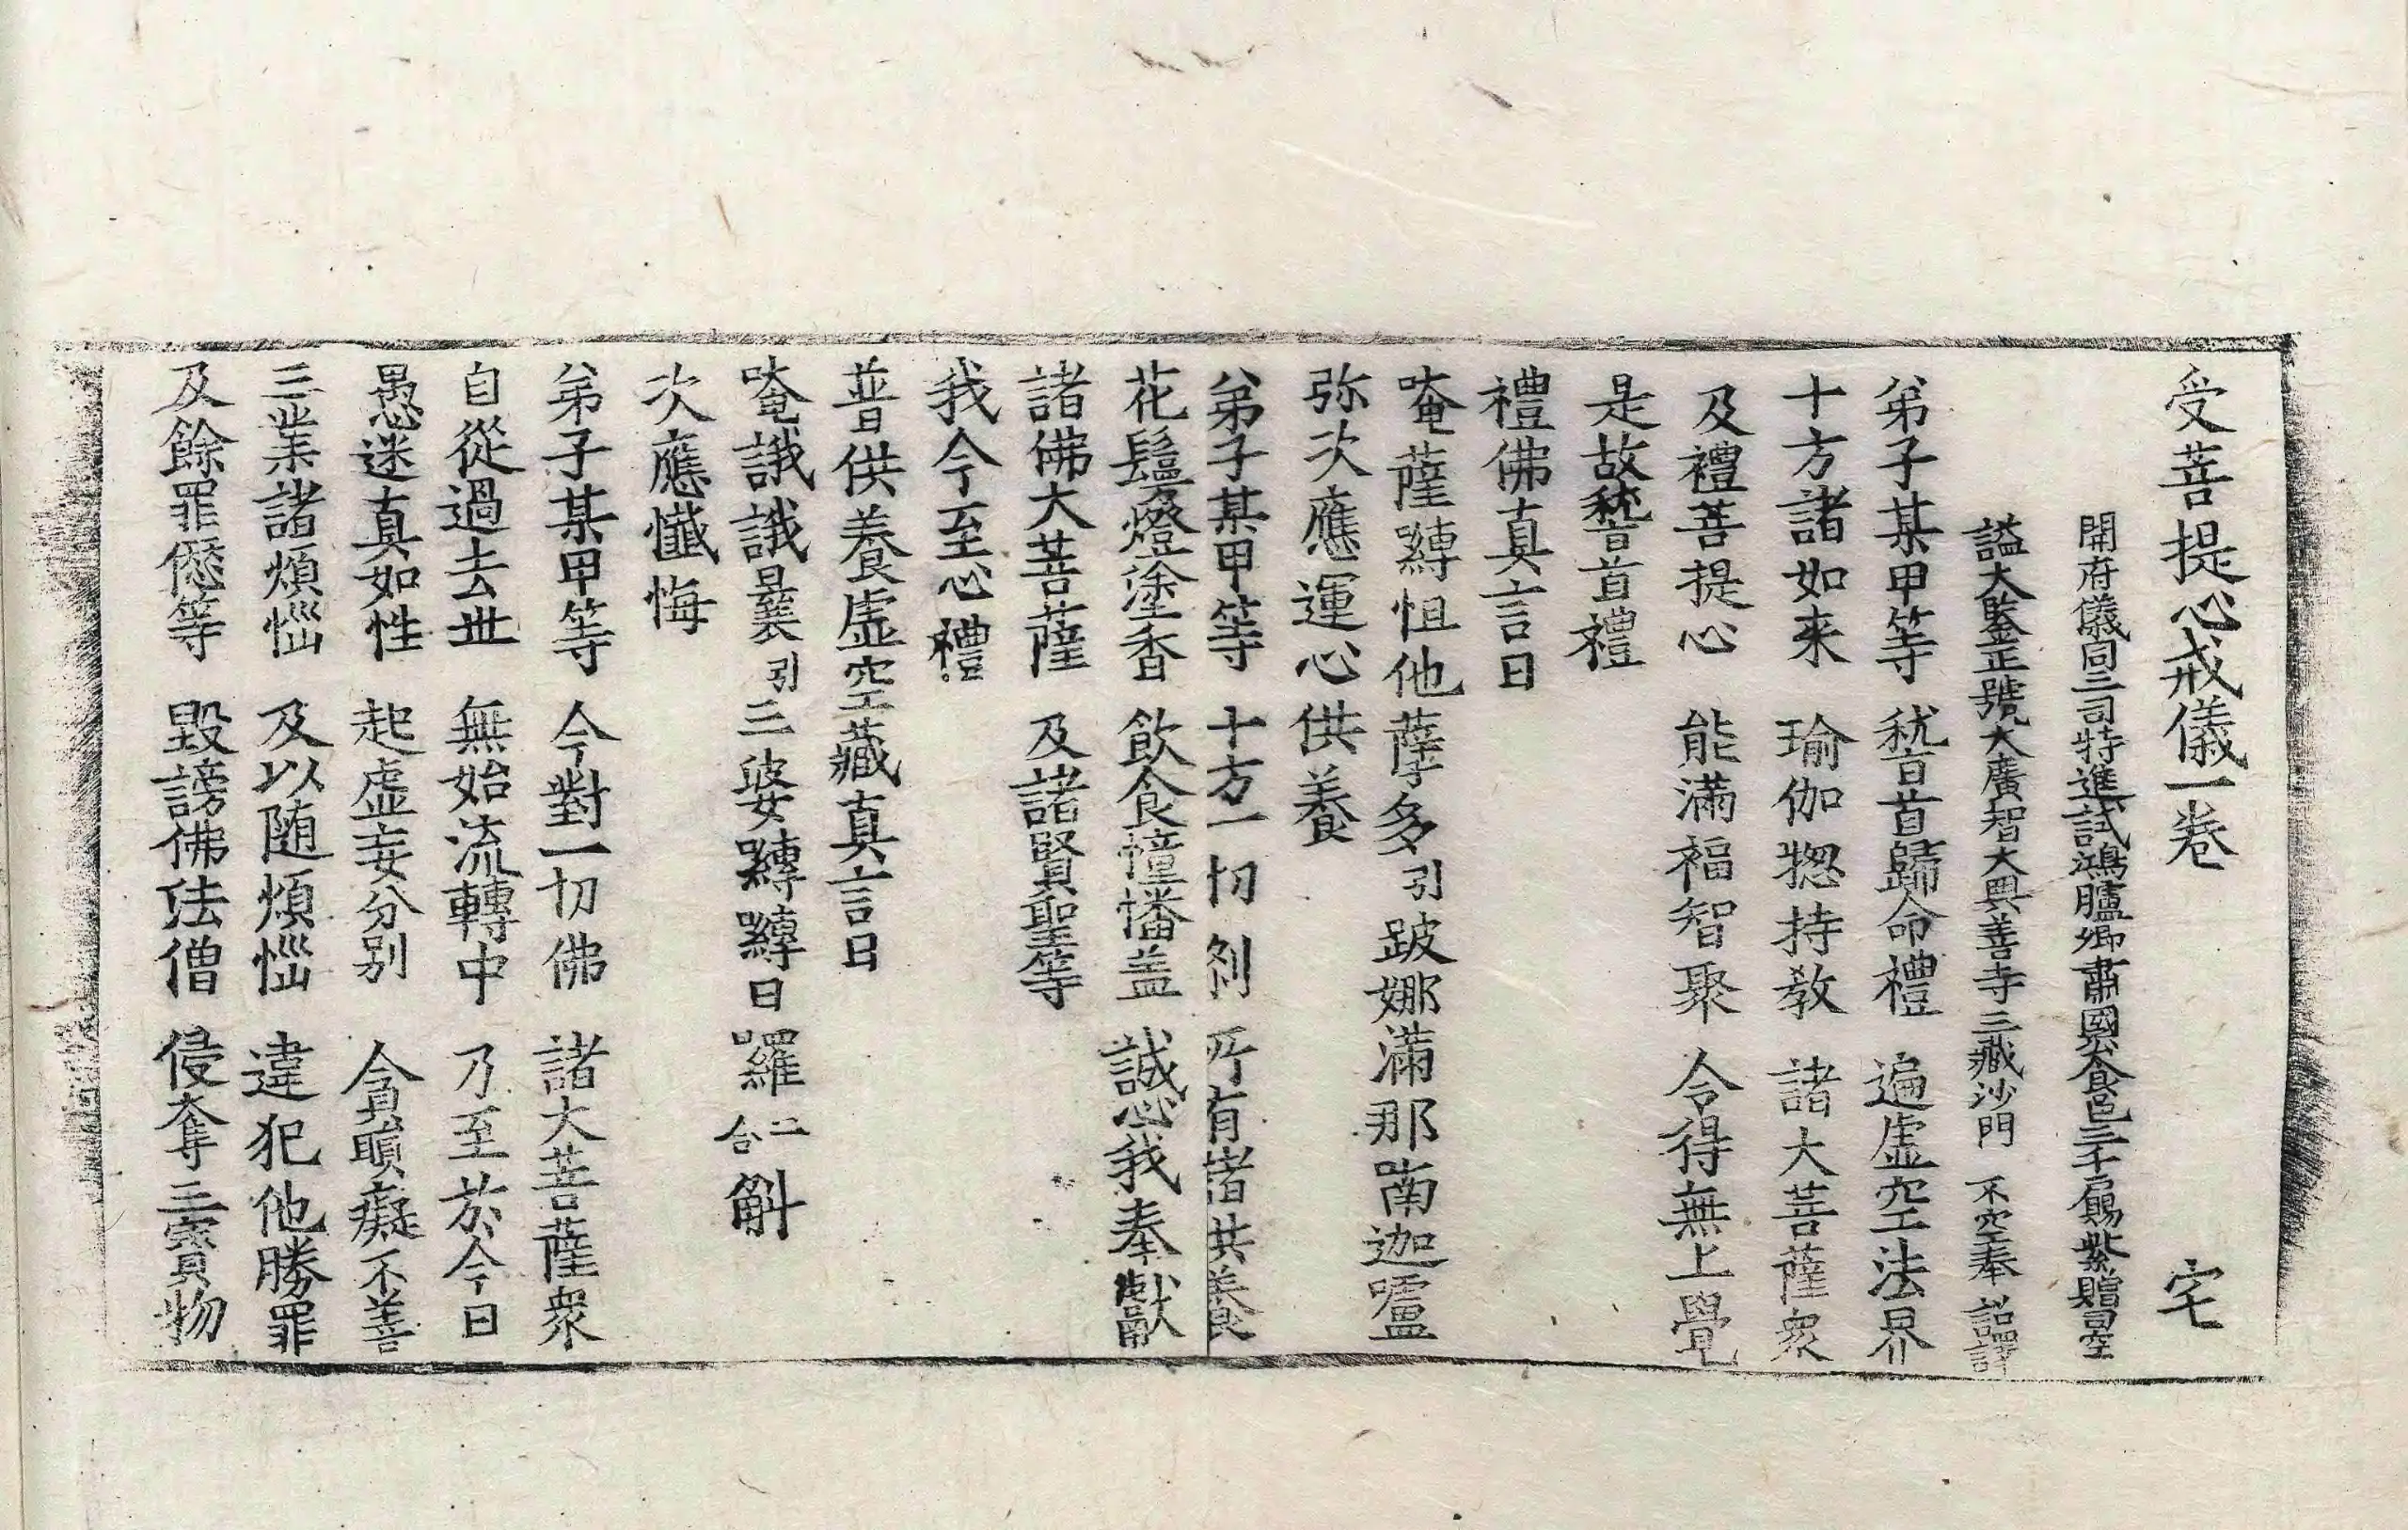 受菩提心戒儀一卷 宅
開府儀同三司特進試鴻臚卿肅國公食邑三千戶賜紫贈司空
謚大鑒正號大廣智大興善寺三藏沙門 不空奉 詔譯
弟子某甲等 稽首歸命禮 遍虛空法界
十方諸如来 瑜伽揔持教 諸大菩薩衆
及禮菩提心 能滿福智聚 令得無上覺
是故稽首禮
禮佛真言曰
唵薩嚩怛他蘖多引跛娜滿那喃迦嚧
弥次應運心供養
弟子某甲等 十方一切刹 所有諸供養
花鬘燈塗香 飲食幢播盖 誠心我奉獻
諸佛大菩薩 及諸賢聖等
我今至心禮
普供養虛空藏真言曰
唵誐誐曩引三婆嚩嚩日囉二合斛
次應懺悔
弟子某甲等 今對一切佛 諸大菩薩衆
自從過去世 無始流轉中 乃至於今日
愚迷真如性 起虛妄分別 貪瞋癡不善
三業諸煩惱 及以随煩惱 違犯他勝罪
及餘罪愆等 毀謗佛法僧 侵奪三寶物